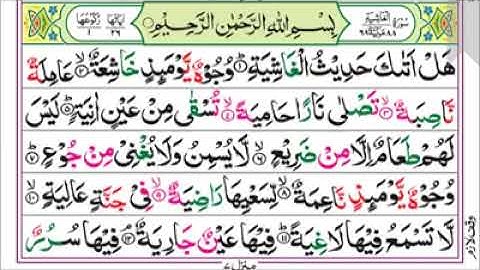 سُوْرَةُ الْغَاشِيَةِ ٨٨ مَكِّيَّةٌ ٦٨ بِسْمِ اللّٰهِ الرَّحْمٰنِ الرَّحِيْمِ اٰيَاتُهَا ٢٦ رُكُوْعُهَا ١
هَلْ اَتٰىكَ حَدِيْثُ الْغَاشِيَةِ ؕ﴿۱﴾ وُجُوْهٌ يَّوْمَىِٕذٍ خَاشِعَةٌ ۙ﴿۲﴾ عَامِلَةٌ
نَّاصِبَةٌ ۙ﴿۳﴾ تَصْلٰى نَارًا حَامِيَةً ۙ﴿۴﴾ تُسْقٰى مِنْ عَيْنٍ اٰنِيَةٍ ؕ﴿۵﴾ لَيْسَ
لَهُمْ طَعَامٌ اِلَّا مِنْ ضَرِيْعٍ ۙ﴿۶﴾ لَّا يُسْمِنُ وَلَا يُغْنِيْ مِنْ جُوْعٍ ؕ﴿۷﴾
وُجُوْهٌ يَّوْمَىِٕذٍ نَّاعِمَةٌ ۙ﴿۸﴾ لِّسَعْيِهَا رَاضِيَةٌ ۙ﴿۹﴾ فِيْ جَنَّةٍ عَالِيَةٍ ۙ﴿۱۰﴾
لَّا تَسْمَعُ فِيْهَا لَاغِيَةً ؕ﴿۱۱﴾ فِيْهَا عَيْنٌ جَارِيَةٌ ۘ﴿۱۲﴾ فِيْهَا سُرُرٌ
وقف لازم
منزل ٧